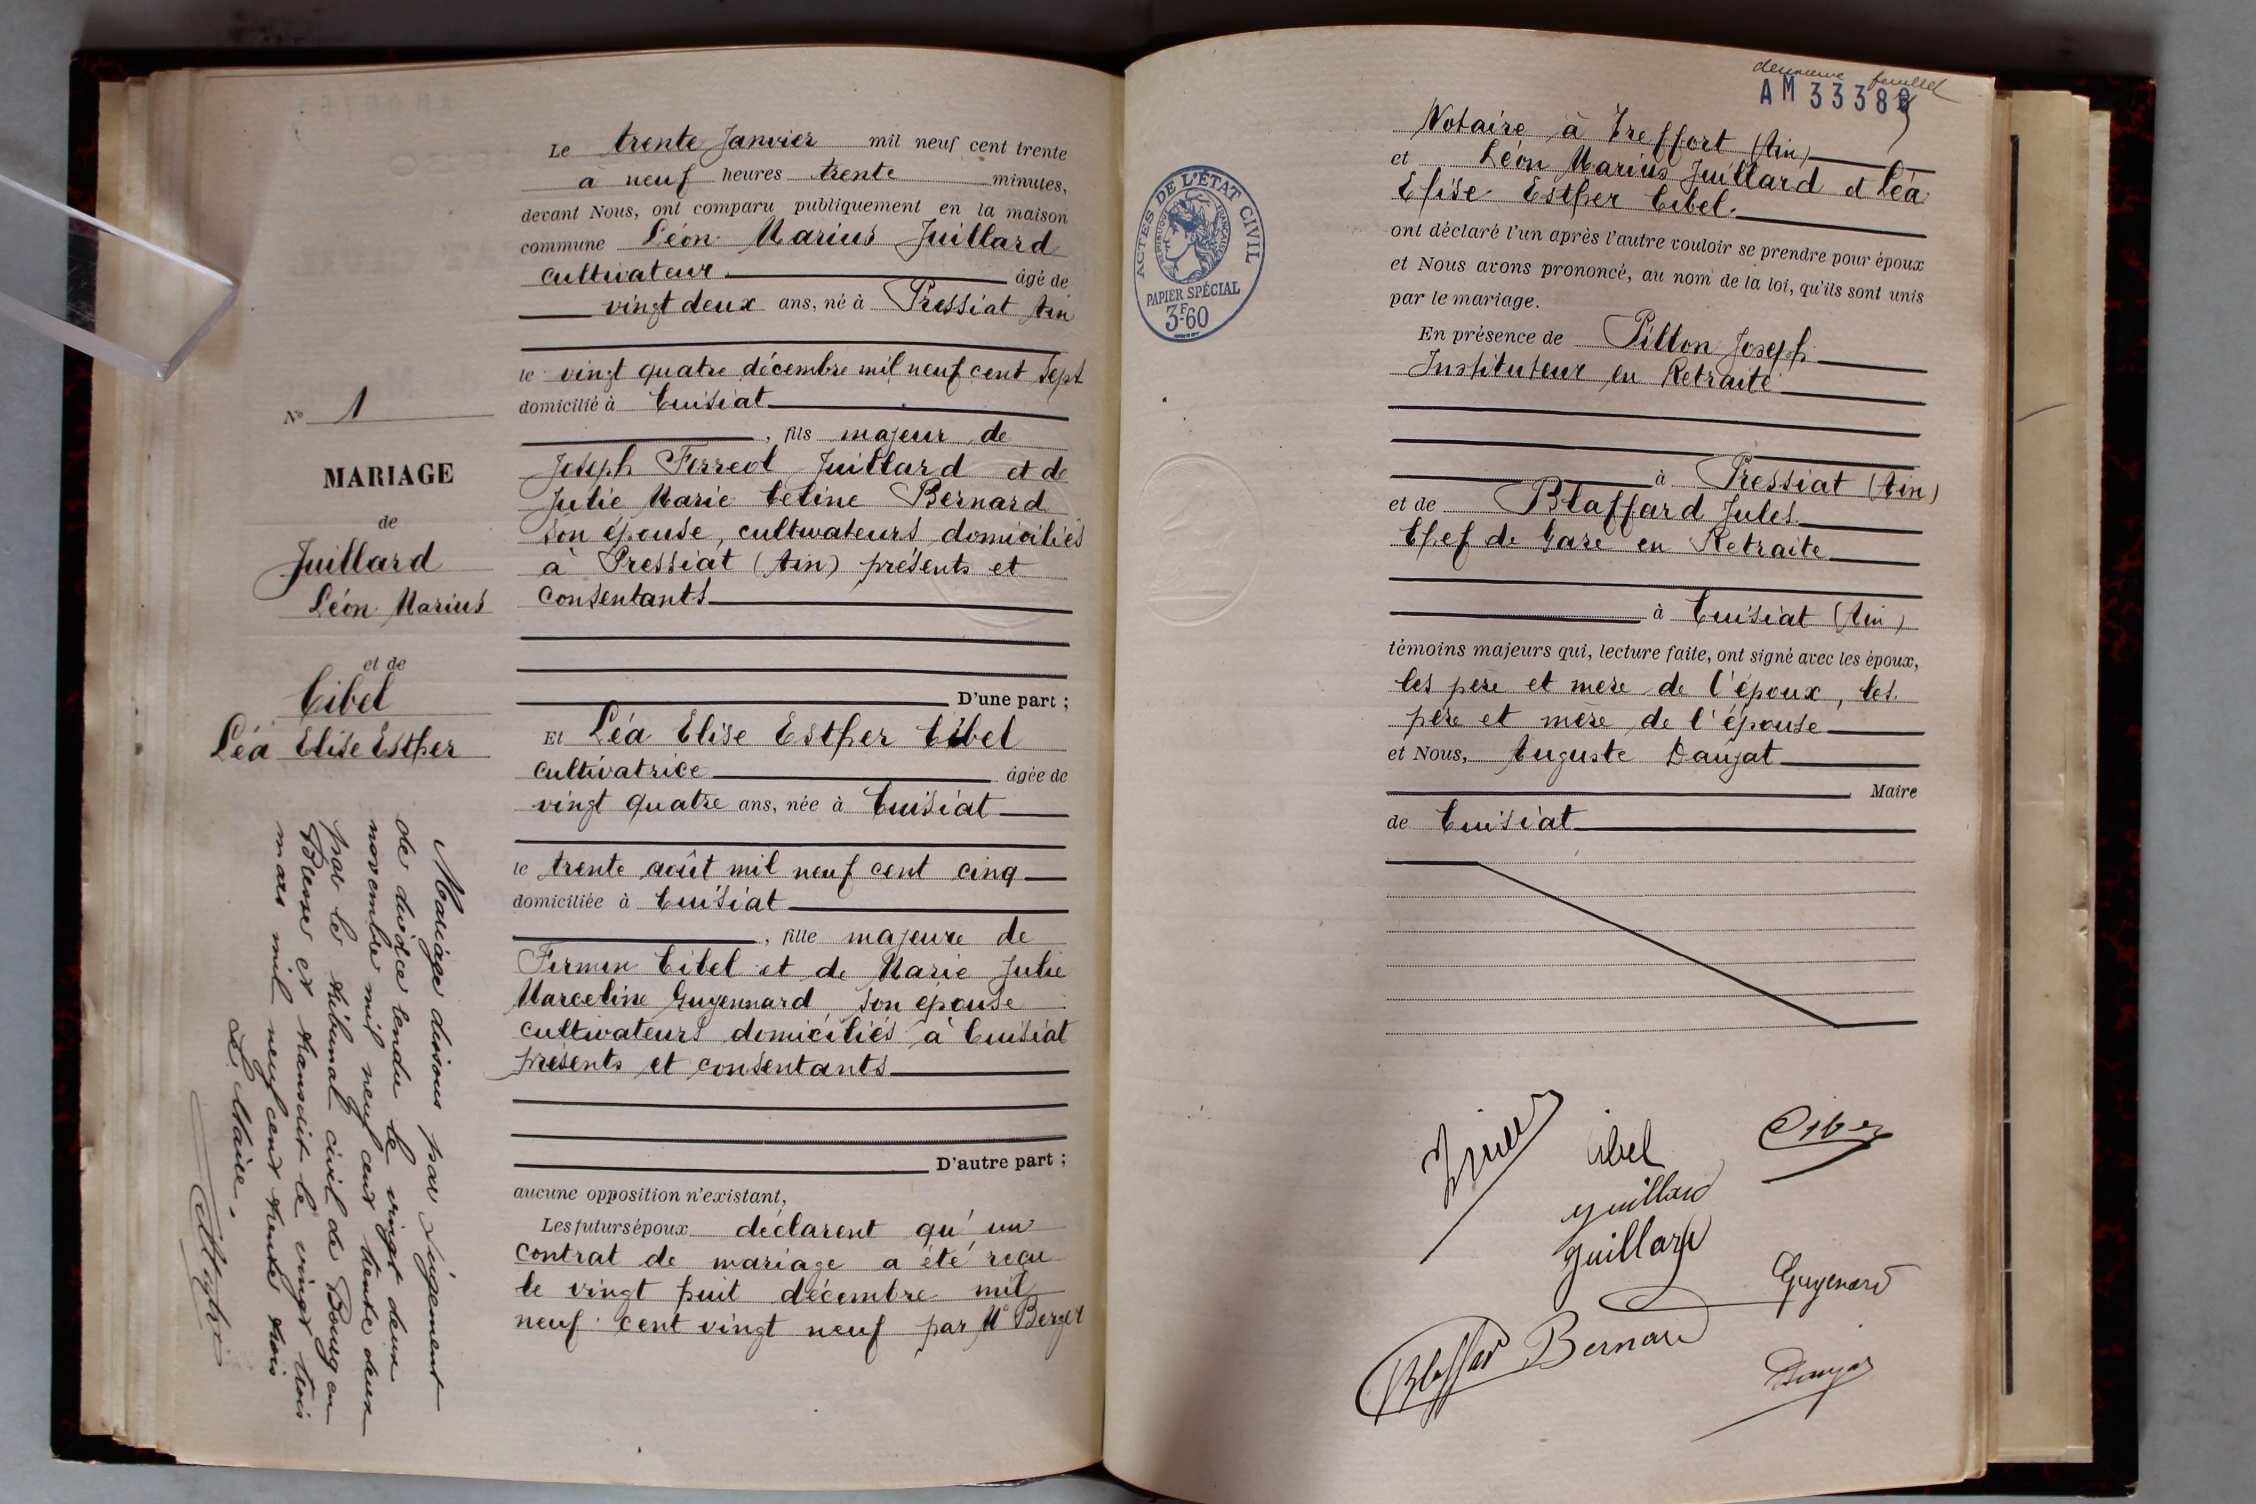 Le trente Janvier mil neuf cent trente
à neuf heures trente minutes,
devant Nous, ont comparu publiquement en la maison
commune Léon Marius Juillard
cultivateur âgé de
vingt deux ans, né à Pressiat Ain
le vingt quatre décembre mil neuf cent sept
domicilié à Cuisiat
, fils majeur de
Joseph Ferreol Juillard et de
Julie Marie Celine Bernard
son épouse, cultivateurs domiciliés
à Pressiat (Ain) présents et
consentants
D'une part ;
Et Léa Elise Esther Cibel
cultivatrice âgée de
vingt quatre ans, née à Cuisiat
le trente août mil neuf cent cinq
domiciliée à Cuisiat
, fille majeure de
Firmin Cibel et de Marie Julie
Marceline Guyennard, son épouse
cultivateurs domiciliés à Cuisiat
présents et consentants
D'autre part ;
aucune opposition n'existant,
Les futurs époux déclarent qu'un
contrat de mariage a été reçu
le vingt huit décembre mil
neuf cent vingt neuf par Me Berger
No 1
MARIAGE
de
Juillard
Léon Marius
et de
Cibel
Léa Elise Esther
Mariage dissous par jugement
de divorce rendu le vingt deux
novembre mil neuf cent trente deux
par le tribunal civil de Bourg en
Bresse et transcrit le vingt trois
mars mil neuf cent trente trois
Le Maire.
deuxième feuillet
AM 3338
ACTES DE L'ÉTAT CIVIL
RÉPUBLIQUE FRANÇAISE
PAPIER SPÉCIAL
3F60
Notaire à Treffort (Ain)
et Léon Marius Juillard et Léa
Elise Esther Cibel.
ont déclaré l'un après l'autre vouloir se prendre pour époux
et Nous avons prononcé, au nom de la loi, qu'ils sont unis
par le mariage.
En présence de Pillon Joseph
Instituteur en Retraite
à Pressiat (Ain)
et de Blaffard Jules
Chef de Gare en Retraite
à Cuisiat (Ain)
témoins majeurs qui, lecture faite, ont signé avec les époux,
les père et mère de l'époux, les
père et mère de l'épouse
et Nous, Auguste Daujat
Maire
de Cuisiat
Cibel
Cibel
Juillard
Juillard
Guyenard
Blaffard Bernard
Daujat